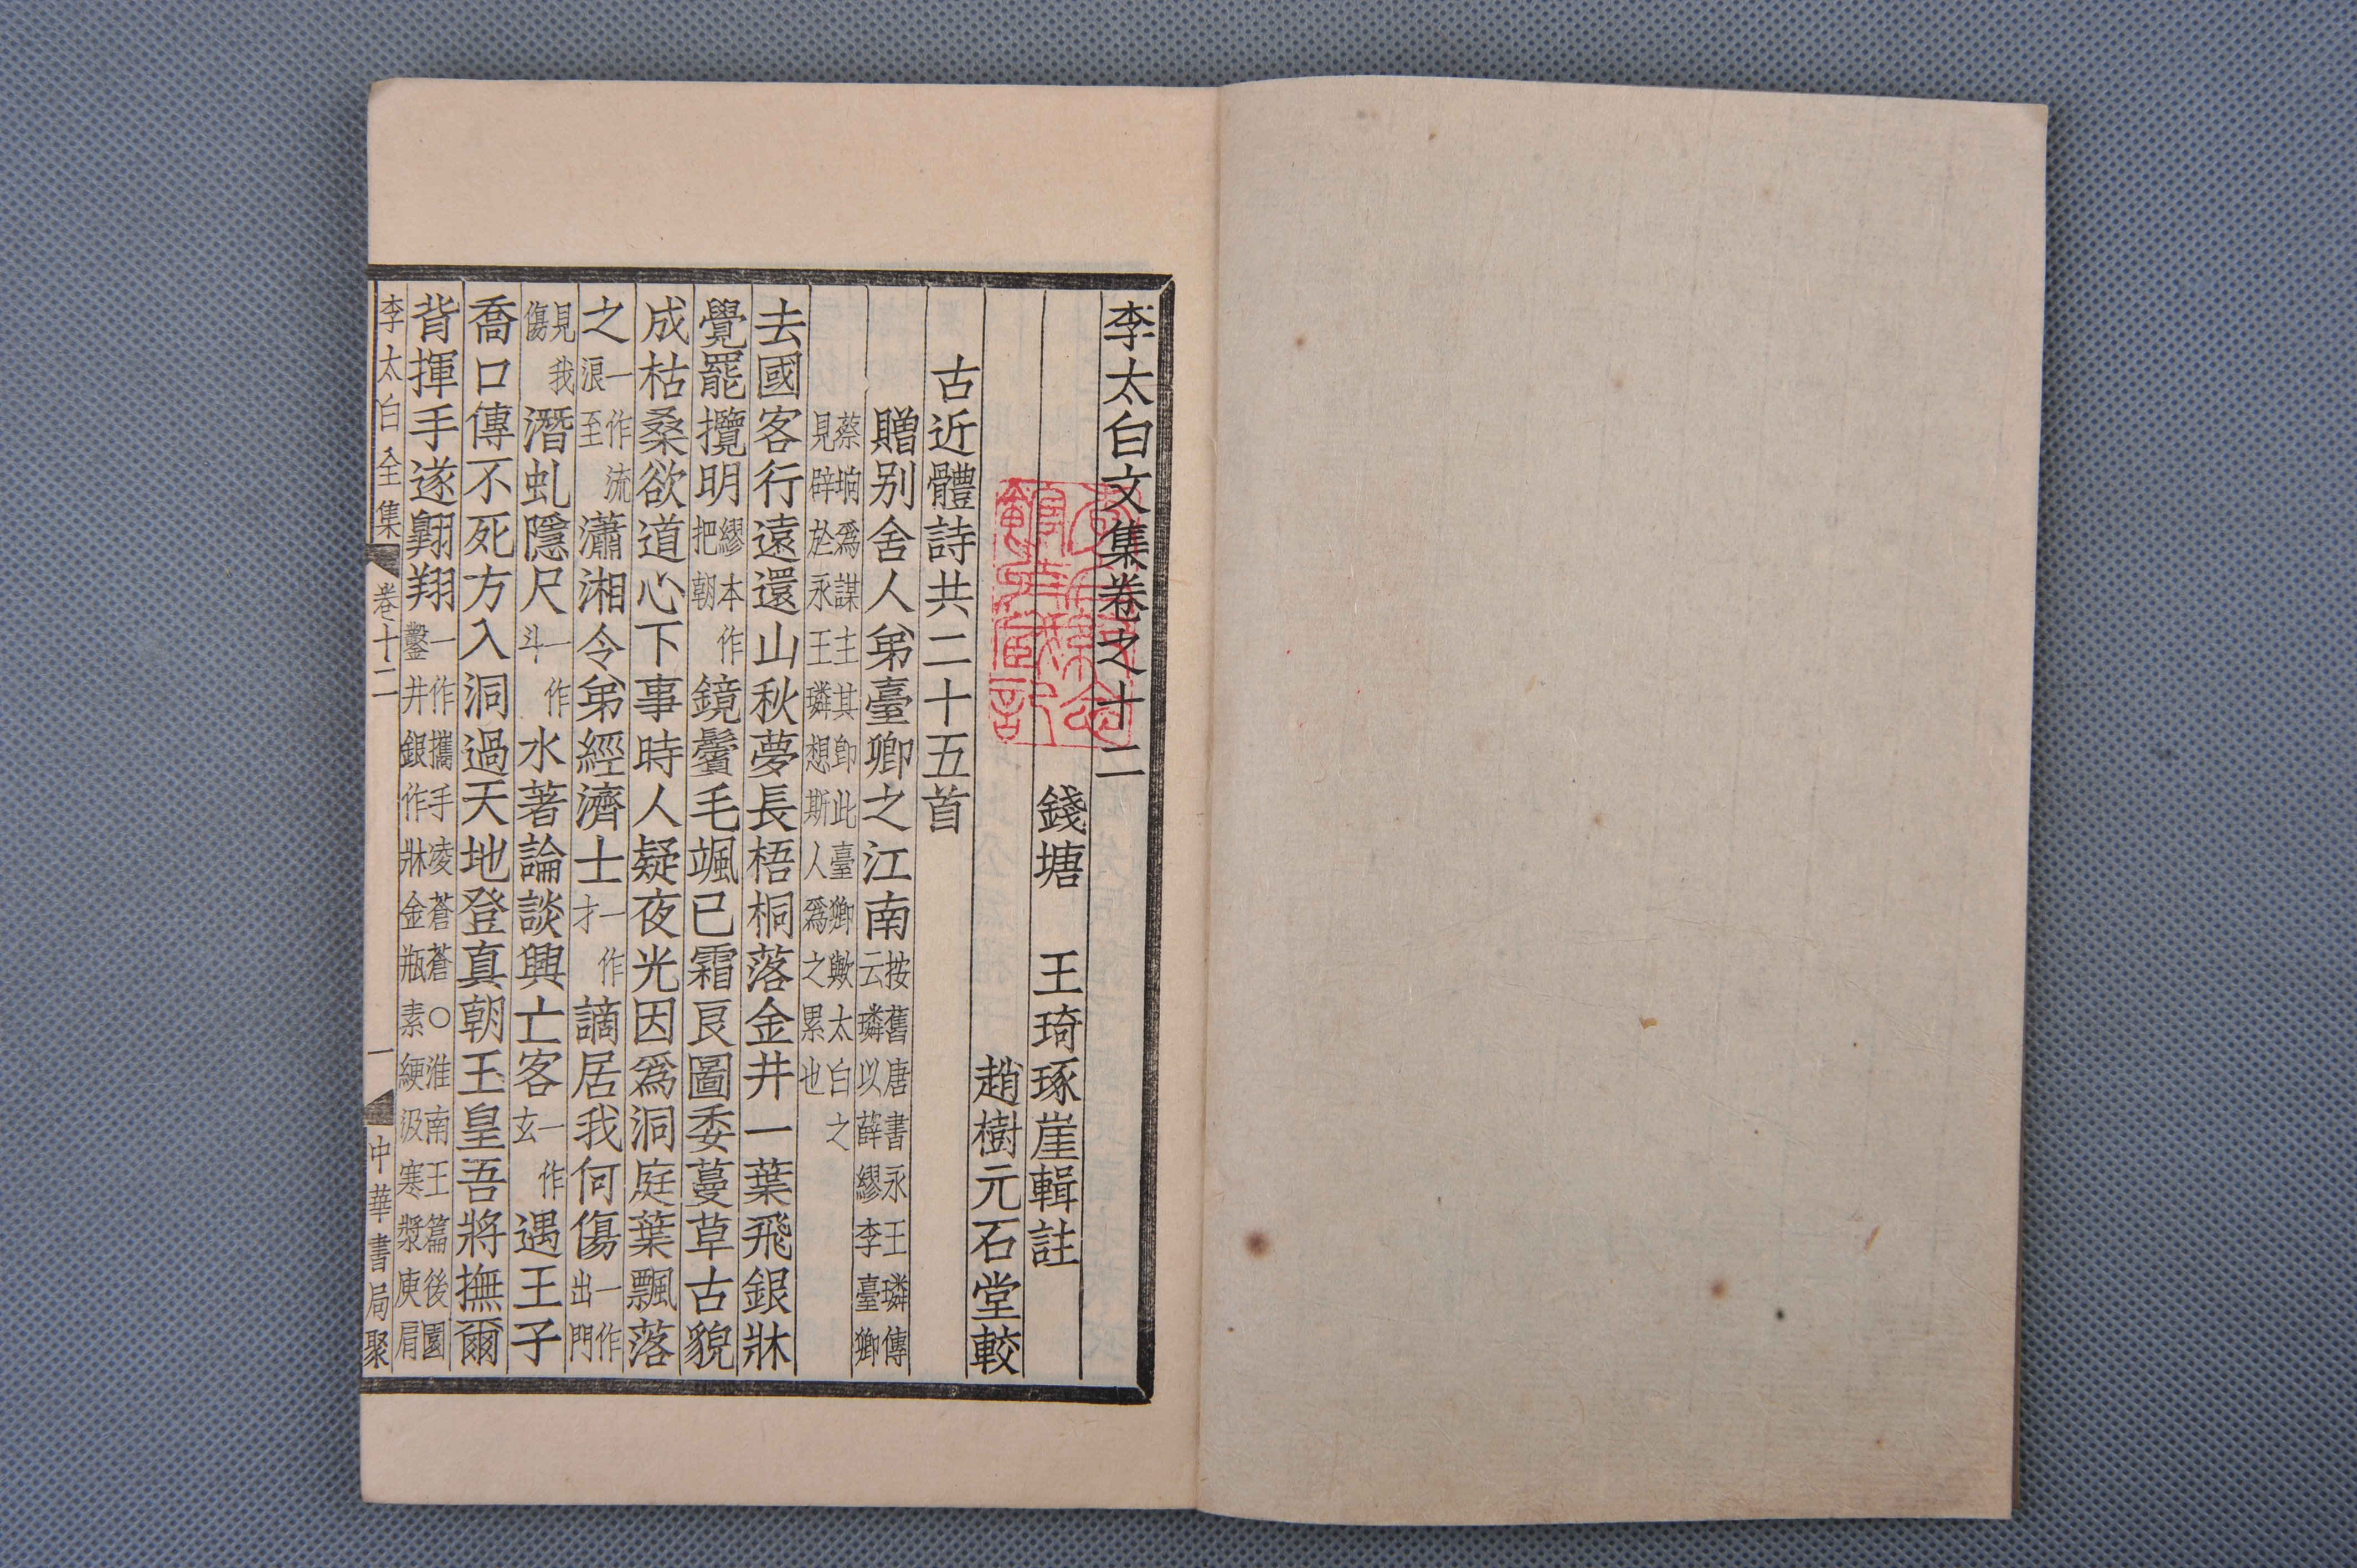 李太白文集卷之十二
錢塘 王琦琢崖輯註
趙樹元石堂較
古近體詩共二十五首
贈别舍人弟臺卿之江南按舊唐書永王璘傳云璘以薛繆李臺卿
蔡垧爲謀主其卽此臺卿歟太白之見辟於永王璘想斯人爲之累也
去國客行遠還山秋夢長梧桐落金井一葉飛銀牀
覺罷攬明繆本作把朝鏡鬢毛颯已霜良圖委蔓草古貌
成枯桑欲道心下事時人疑夜光因爲洞庭葉飄落
之一作流浪至瀟湘令弟經濟士一作才謫居我何傷一作出門
見我傷潛虬隱尺一作斗水著論談興亡客一作玄遇王子
喬口傳不死方入洞過天地登真朝玉皇吾將撫爾
背揮手遂翺翔一作攜手凌蒼蒼○淮南王篇後園鑿井銀作牀金瓶素綆汲寒漿庾肩
李太白全集 卷十二 一 中華書局聚